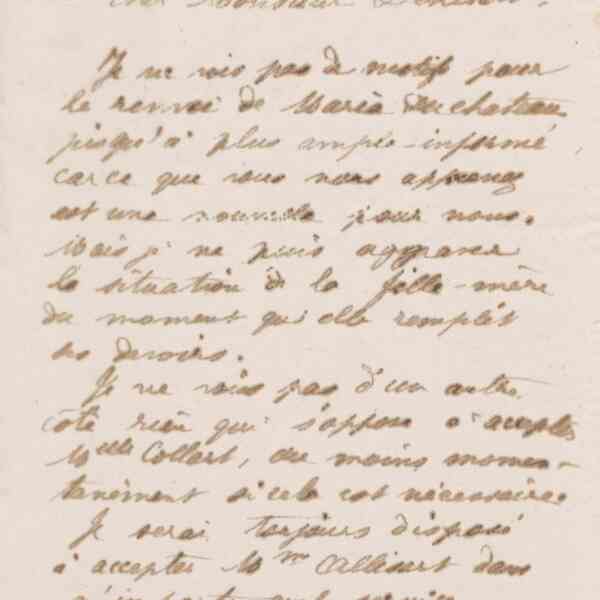 Je ne vois pas de motifs pour
le renvoi de Maria du chateau
jusqu'à plus ample-informé
car ce que vous nous apprenez
est une nouvelle pour nous.
Mais je ne puis aggraver
la situation de la fille-mère
du moment qui elle remplit
ses devoirs.
Je ne vois pas d'un autre
côté rien qui s'oppose à accepter
Mlle Collart, au moins momen-
tanément si cela est nécessaire
Je serai toujours disposé
à accepter Mme Allisart dans
n'importe quel service